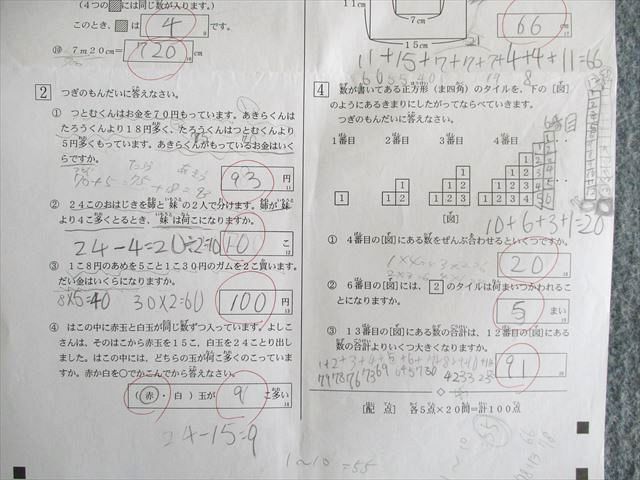 (4つの▨には同じ数が入ります。)
このとき、▨は 4 です。
⑩ 7m20cm= 720 cm
2 つぎのもんだいに答えなさい。
① つとむくんはお金を70円もっています。あきらくんは
たろうくんより18円多く、たろうくんはつとむくんより
5円多くもっています。あきらくんがもっているお金はいく
らですか。
70+5=75
93 円
② 24このおはじきを姉と妹の2人で分けます。姉が妹
より4こ多くとるとき、妹は何こになりますか。
24-4=20÷2=10
10 こ
③ 1こ8円のあめを5こと1こ30円のガムを2こ買います。
だい金はいくらになりますか。
8×5=40 30×2=60
100 円
④ はこの中に赤玉と白玉が同じ数ずつ入っています。よしこ
さんは、そのはこから赤玉を15こ、白玉を24ことり出し
ました。はこの中には、どちらの玉が何こ多くのこっていま
すか。赤か白を○でかこんでから答えなさい。
(赤・白)玉が 9 こ多い
24-15=9
1～10=55
11cm
7cm
15cm
66 cm
11+15+7+7+7+4+4+11=66
4 数が書いてある正方形(ま四角)のタイルを、下の[図]
のようにあるきまりにしたがってならべていきます。
つぎのもんだいに答えなさい。
1番目 2番目 3番目 4番目
6番目
1
1
1 2
1
1 2
1 2 3
1
1 2
1 2 3
1 2 3 4
[図]
10+6+3+1=20
① 4番目の[図]にある数をぜんぶ合わせるといくつですか。
20
② 6番目の[図]には、2のタイルは何まいつかわれるこ
とになりますか。
5 まい
③ 13番目の[図]にある数の合計は、12番目の[図]にある
数の合計よりいくつ大きくなりますか。
91
[配点] 各5点×20問=計100点